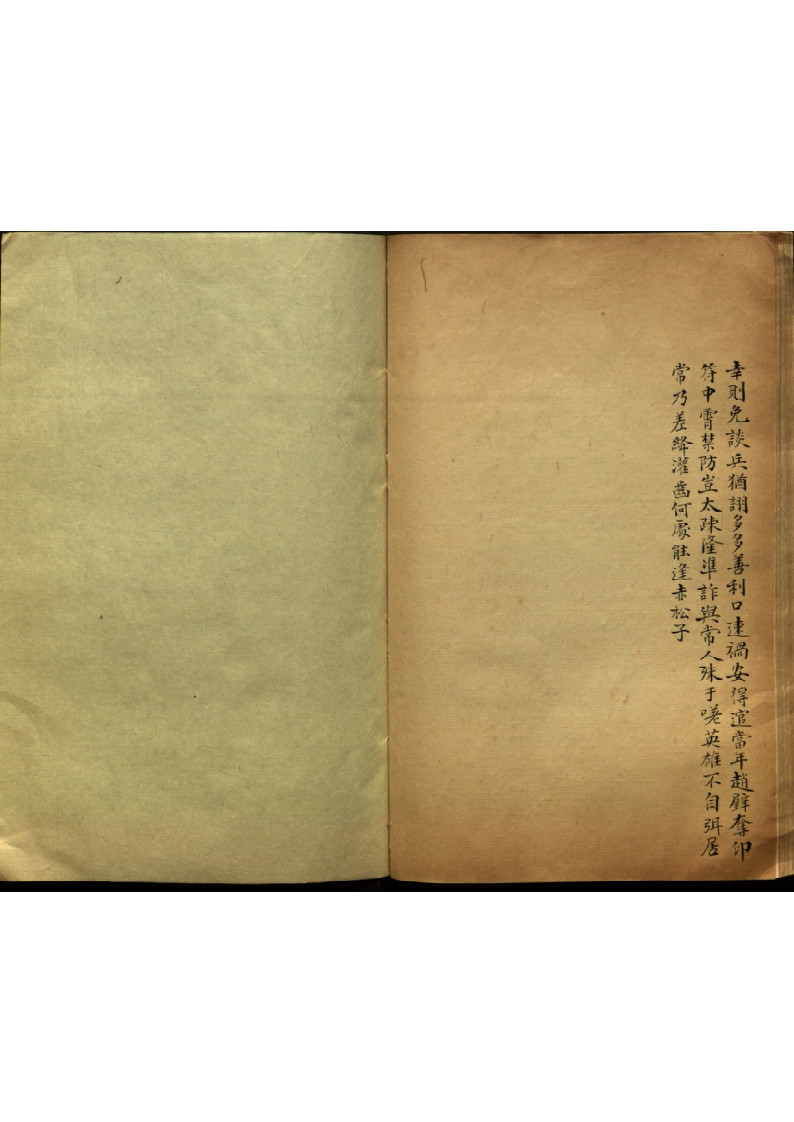 幸則免談兵猶詡多多善利口速禍安得逭當年趙壁奪印
符中霄禁防豈太疎隆準詐與常人殊于嗟英雄不自弭居
常乃羞絳灌齒何處能逢赤松子